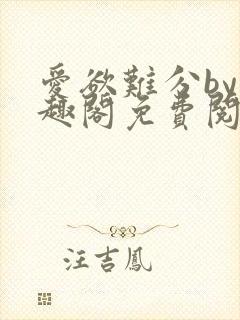 愛欲難分by
趣閣免費閱
汪吉鳳